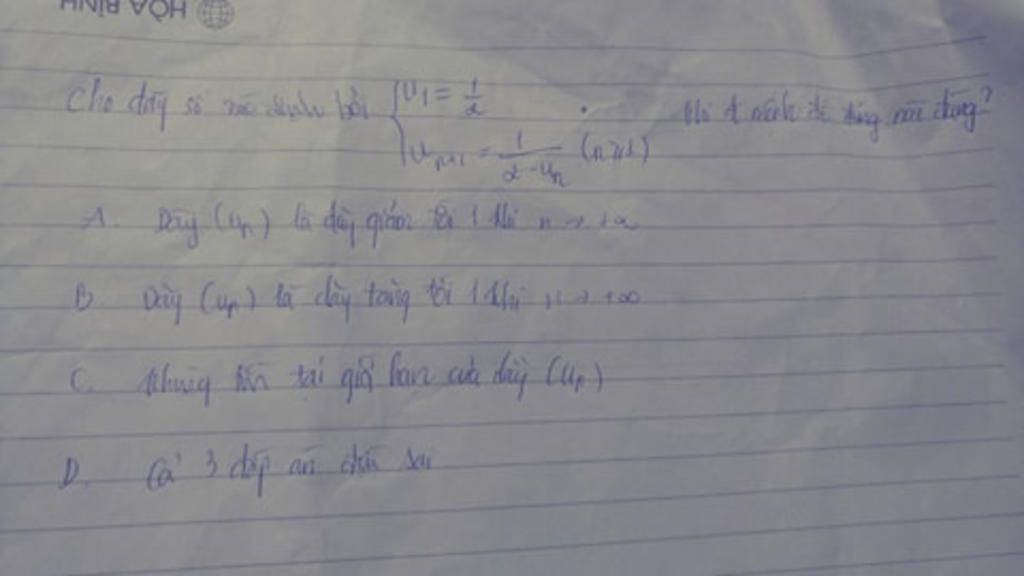 HÒA BÌNH
Cho dãy số xác định bởi { u₁ = 1/2 Khi đó mệnh đề đúng nào đúng?
u_{n+1} = 1/(2 - u_n) (n ≥ 1)
A. Dãy (u_n) là dãy giảm tới 1 khi n → +∞
B. Dãy (u_n) là dãy tăng tới 1 khi n → +∞
C. Không tồn tại giới hạn của dãy (u_n)
D. Cả 3 đáp án đều sai